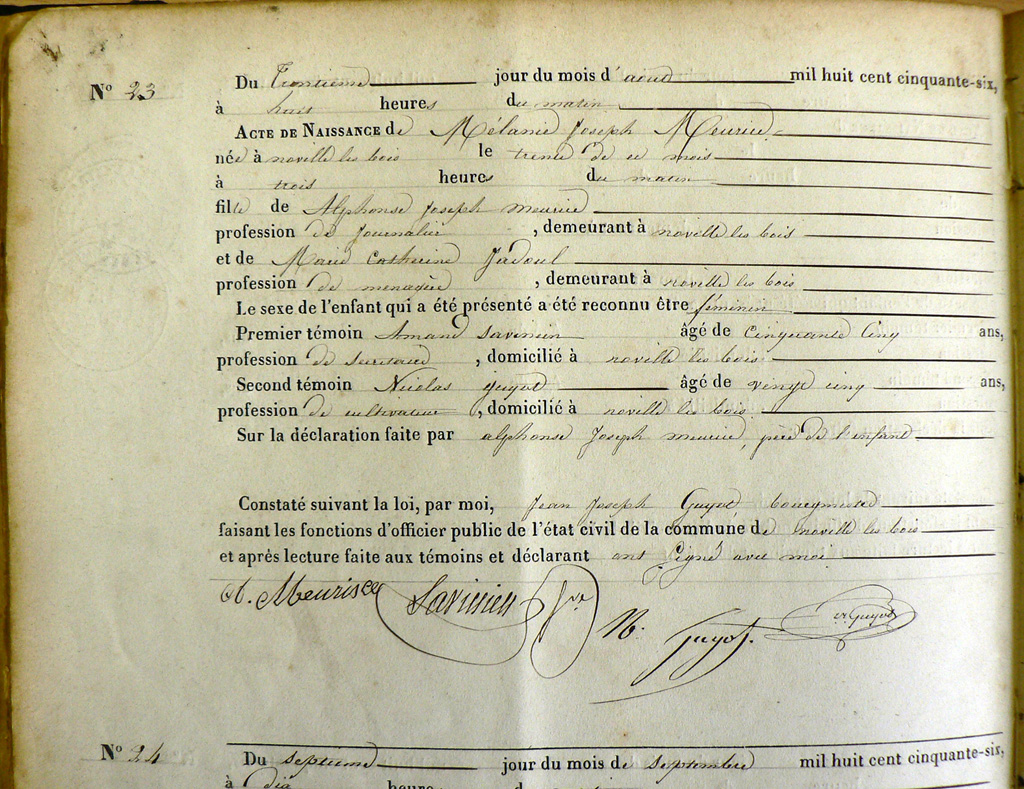 N° 23
Du trentieme jour du mois d'aout mil huit cent cinquante-six,
à huit heures du matin
ACTE DE NAISSANCE de Mélanie Joseph Meurice
née à noville les bois le trente de ce mois
à trois heures du matin
fille de Alphonse Joseph meurice
profession de Journalier , demeurant à noville les bois
et de Marie Catherine Jadoul
profession de menagère , demeurant à noville les bois
Le sexe de l'enfant qui a été présenté a été reconnu être féminin
Premier témoin Amand Savinien âgé de Cinquante Cinq ans,
profession de secretaire , domicilié à noville les bois
Second témoin Nicolas guyot âgé de vingt cinq ans,
profession de cultivateur , domicilié à noville les bois
Sur la déclaration faite par alphonse Joseph meurice, père de l'enfant
Constaté suivant la loi, par moi, Jean Joseph Guyot bourgmestre
faisant les fonctions d'officier public de l'état civil de la commune de noville les bois
et après lecture faite aux témoins et déclarant ont signé avec moi
A. Meurisce Savinien N. Guyot. Guyot
N° 24
Du septieme jour du mois de septembre mil huit cent cinquante-six,
à dix heures